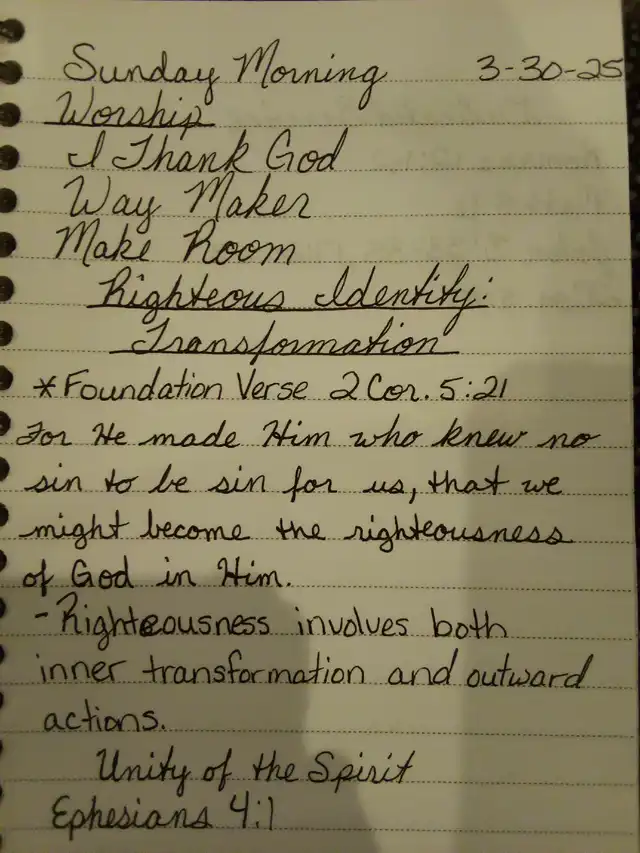 Sunday Morning 3-30-25
Worship
I Thank God
Way Maker
Make Room
Righteous Identity:
Transformation
*Foundation Verse 2 Cor. 5:21
For He made Him who knew no
sin to be sin for us, that we
might become the righteousness
of God in Him.
-Righteousness involves both
inner transformation and outward
actions.
Unity of the Spirit
Ephesians 4:1